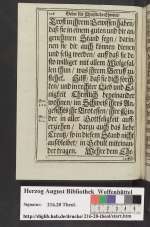 Trost in ihrem Gewissen haben/
daß sie in einem guten und dir an-
genehmen Stand seyn: darin-
nen sie dir auch können dienen
und selig werden/ auff daß sie de-
sto williger mit allem
thun/ was ihrem Beruff zu-
stehet. Hilff/ daß sie dich fürch-
ten/ und in rechter Lieb und Ei-
nigkeit Christlich beyeinander
wohnen/ im Schweiß ihres An-
gesichts ihr Brot essen/ ihre Kin-
der in aller Gottseligkeit auff-
erziehen/ darzu auch das liebe
Creutz/ so in diesem Stand nicht
aussenbleibet/ in Gedult miteinan-
der tragen. Wehre dem Ehe-
Herzog August Bibliothek Wolfenbüttel
Signatur: 216.20 Theol.
http://diglib.hab.de/drucke/216-20-theol/start.htm